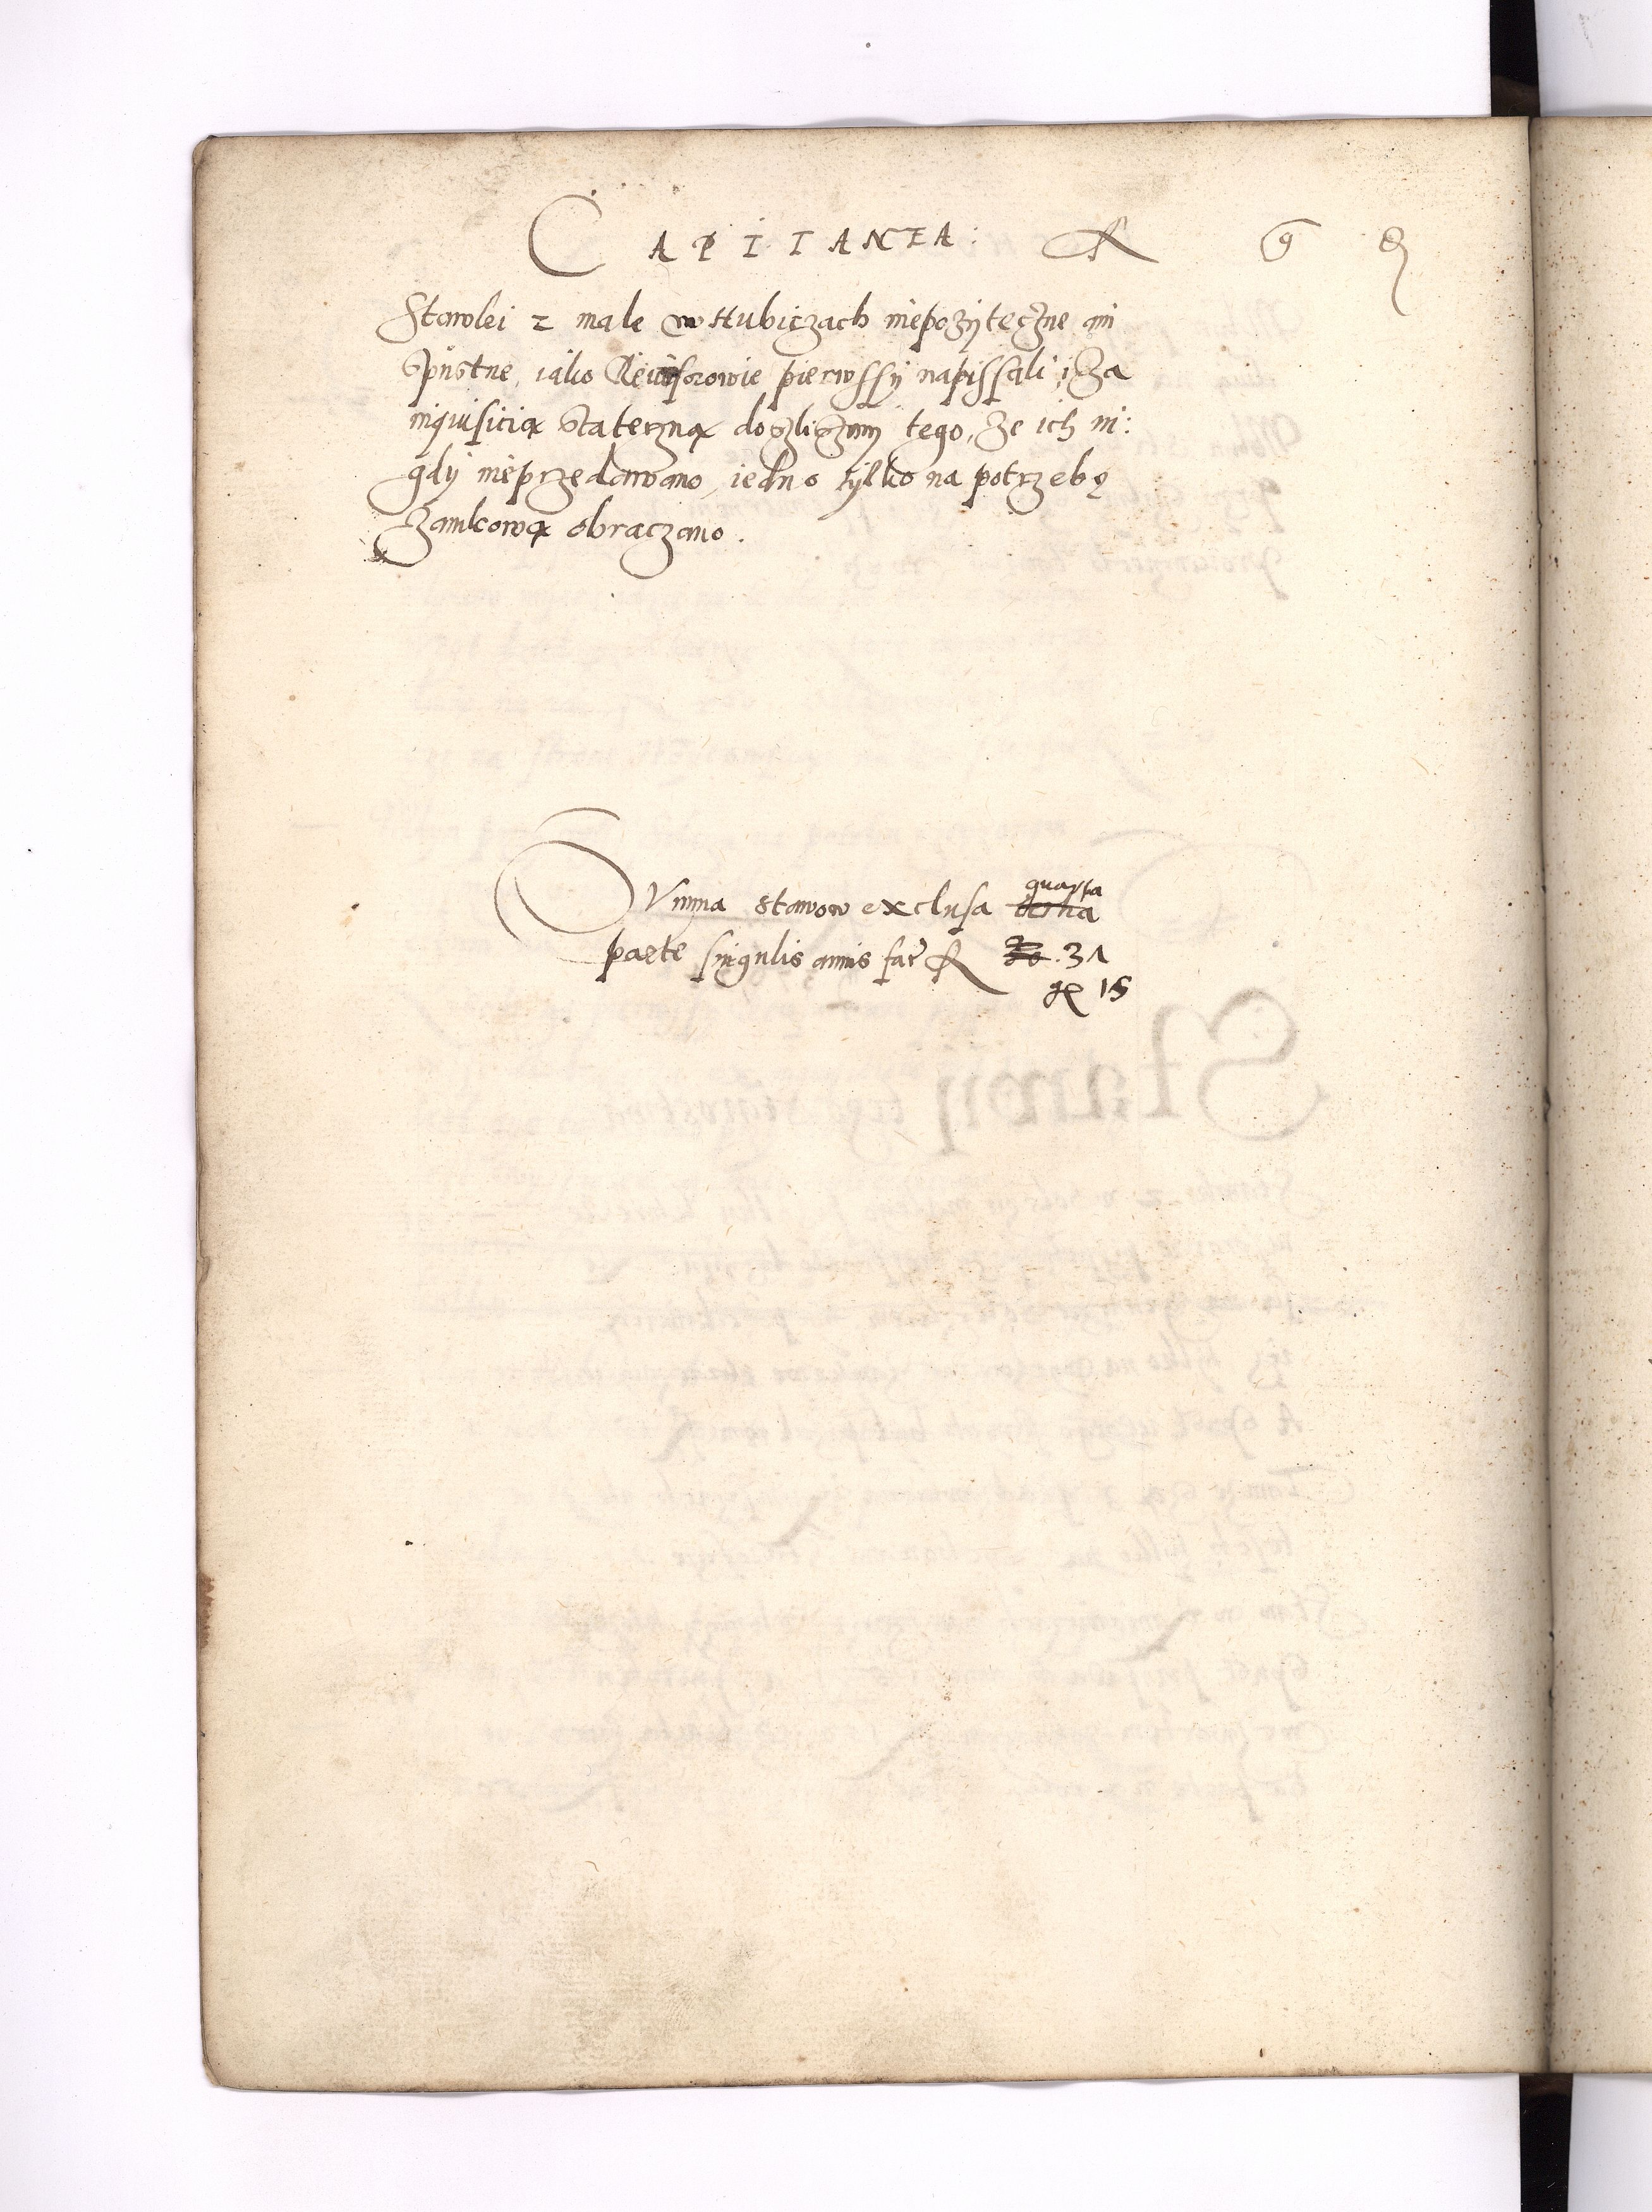 CAPITANEA: R g ꝗ
Stawki 2 małe w Hubiczach niepożyteczne ani
spustne, iako Rewisorowie pierwssy napissali, i za
inquisicią stateczną doszlismy tego, że ich ni:
gdy nieprzedawano, iedno tylko na potrzebę
zamkową obraczano.
Summa stawow exclusa tertia quarta
parte singulis annis fac R 20. 31
gr 15